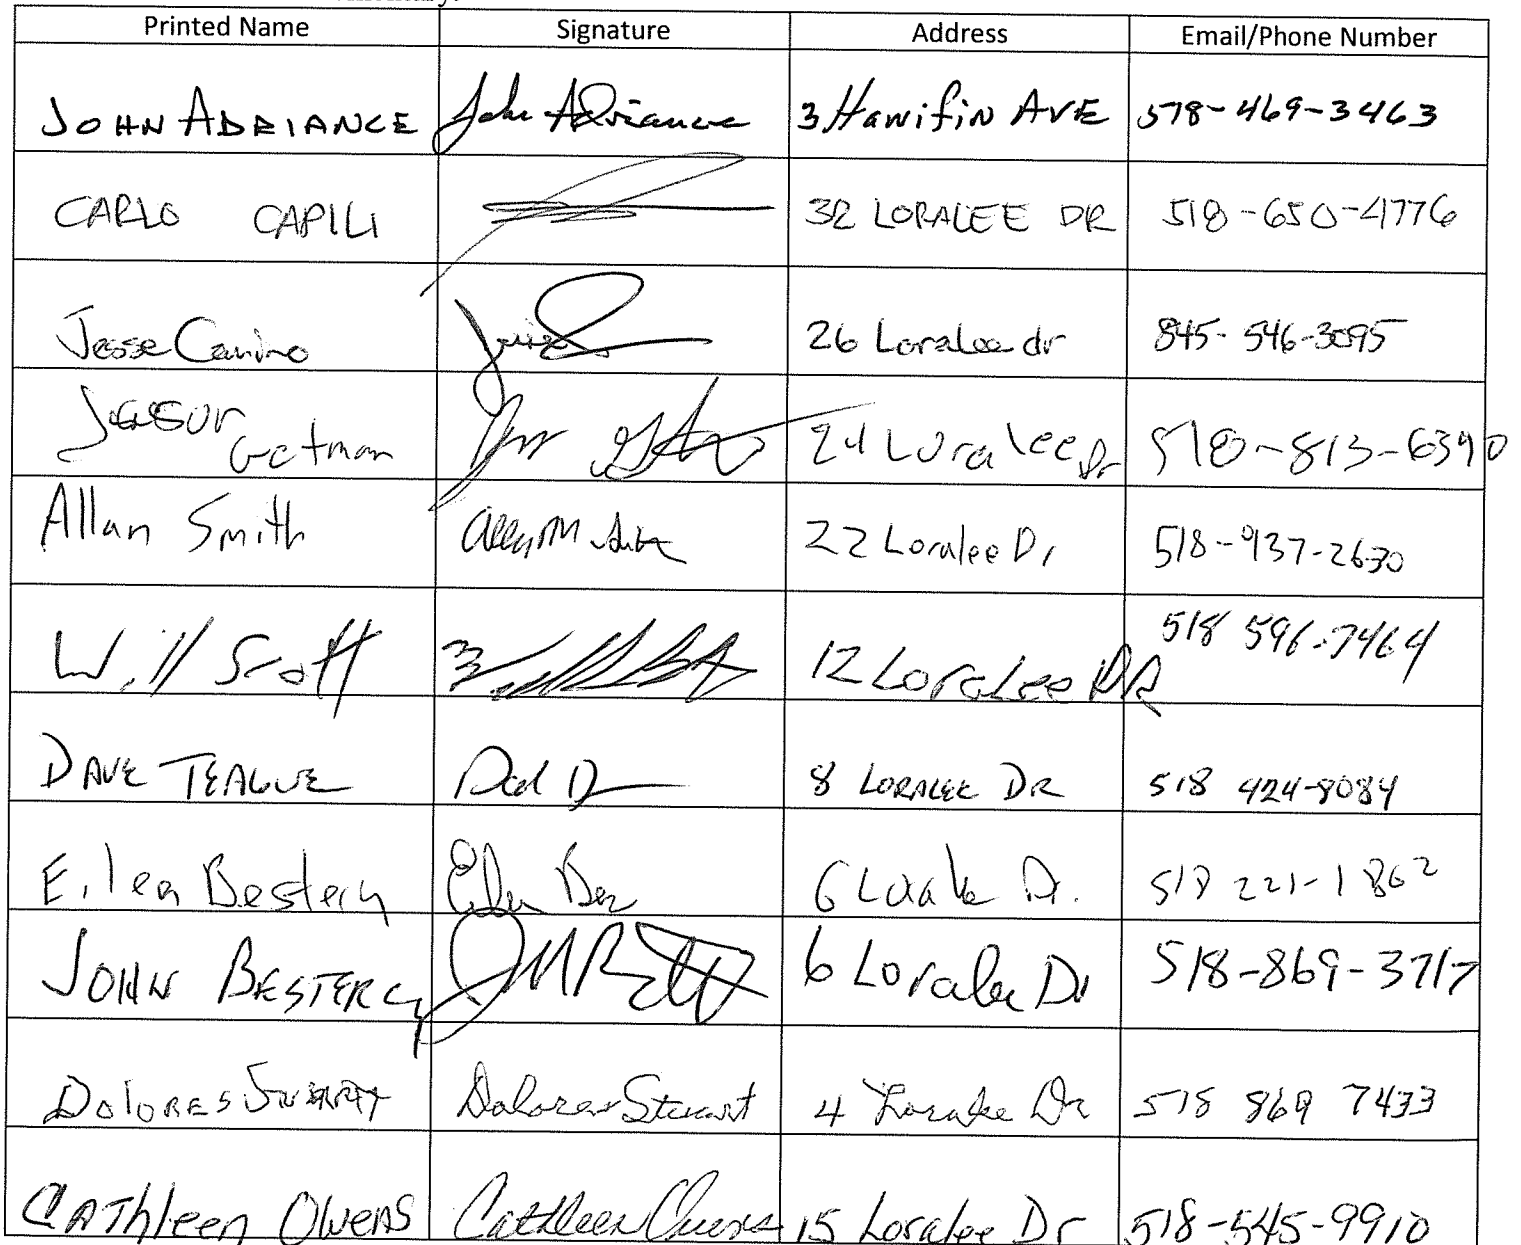 Printed Name Signature Address Email/Phone Number
JOHN ADRIANCE John Adriance 3 Hanifin AVE 518-469-3463
CARLO CAPILI 32 LORALEE DR 518-650-4776
Jesse Camino 26 Loralee dr 845-546-3095
Jason Getman 24 Loralee Dr 518-813-6390
Allan Smith 22 Loralee Dr 518-937-2630
Will Scott 12 Loralee DR 518 596-7464
DAVE TEAGUE 8 LORALEE DR 518 424-8084
Eileen Bestery 6 Loralee Dr. 518 221-1862
JOHN BESTERY 6 Loralee Dr 518-869-3717
DOLORES Dolores Stewart 4 Loralee Dr 518 869 7433
CAThleen Owens Cathleen Owens 15 Loralee Dr 518-545-9910